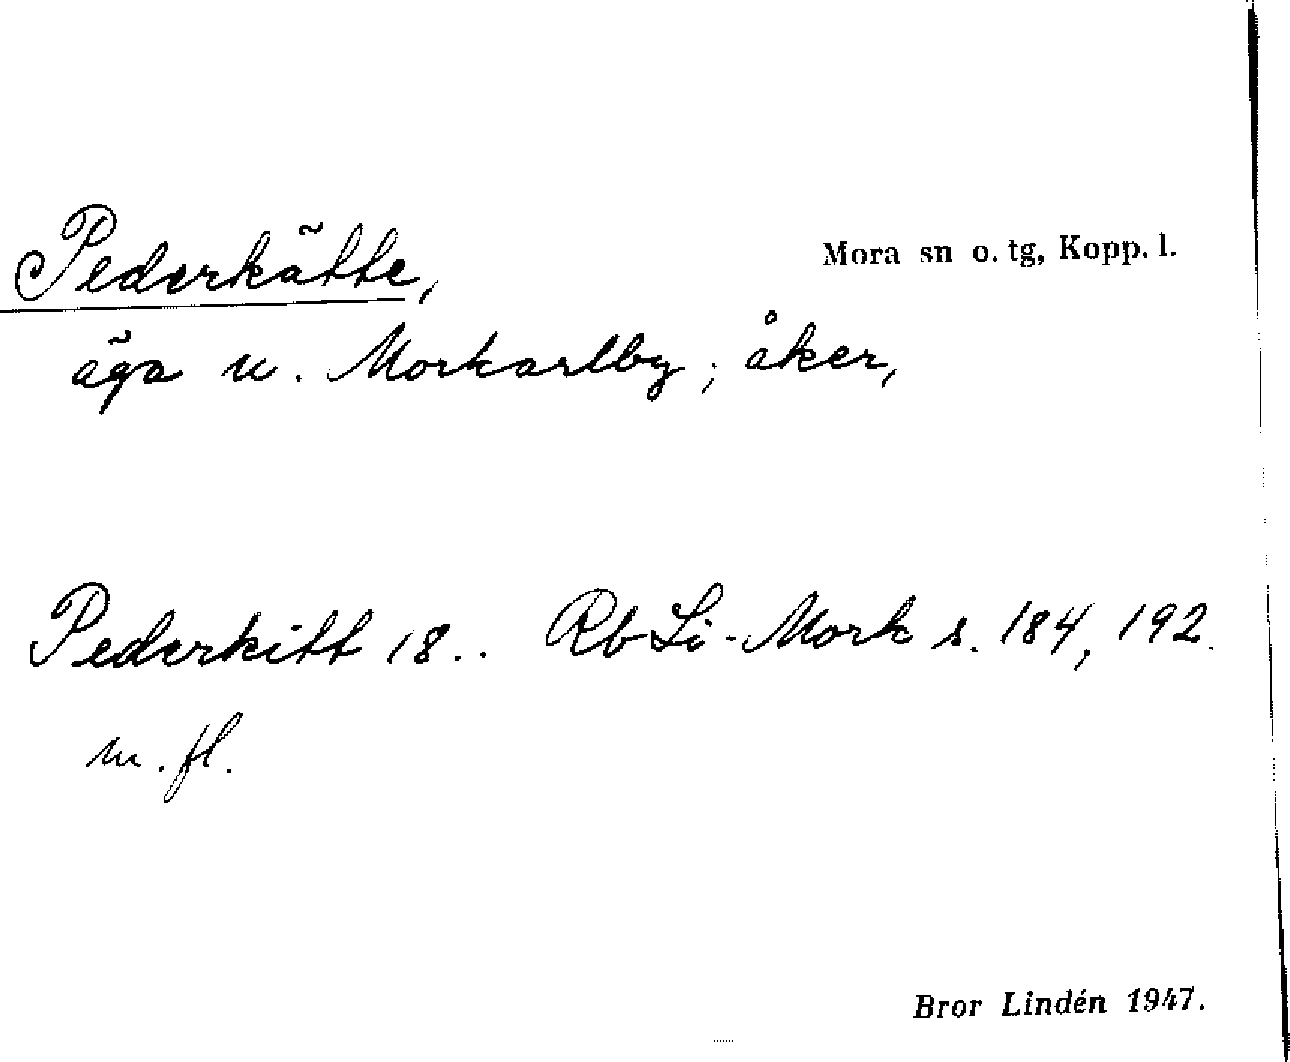 Pederkätte,
Mora sn o. tg, Kopp. l.
äga u. Morkarlby; åker,
Pederkitt 18.. Rb Li-Mork s. 184, 192.
m. fl.
Bror Lindén 1947.